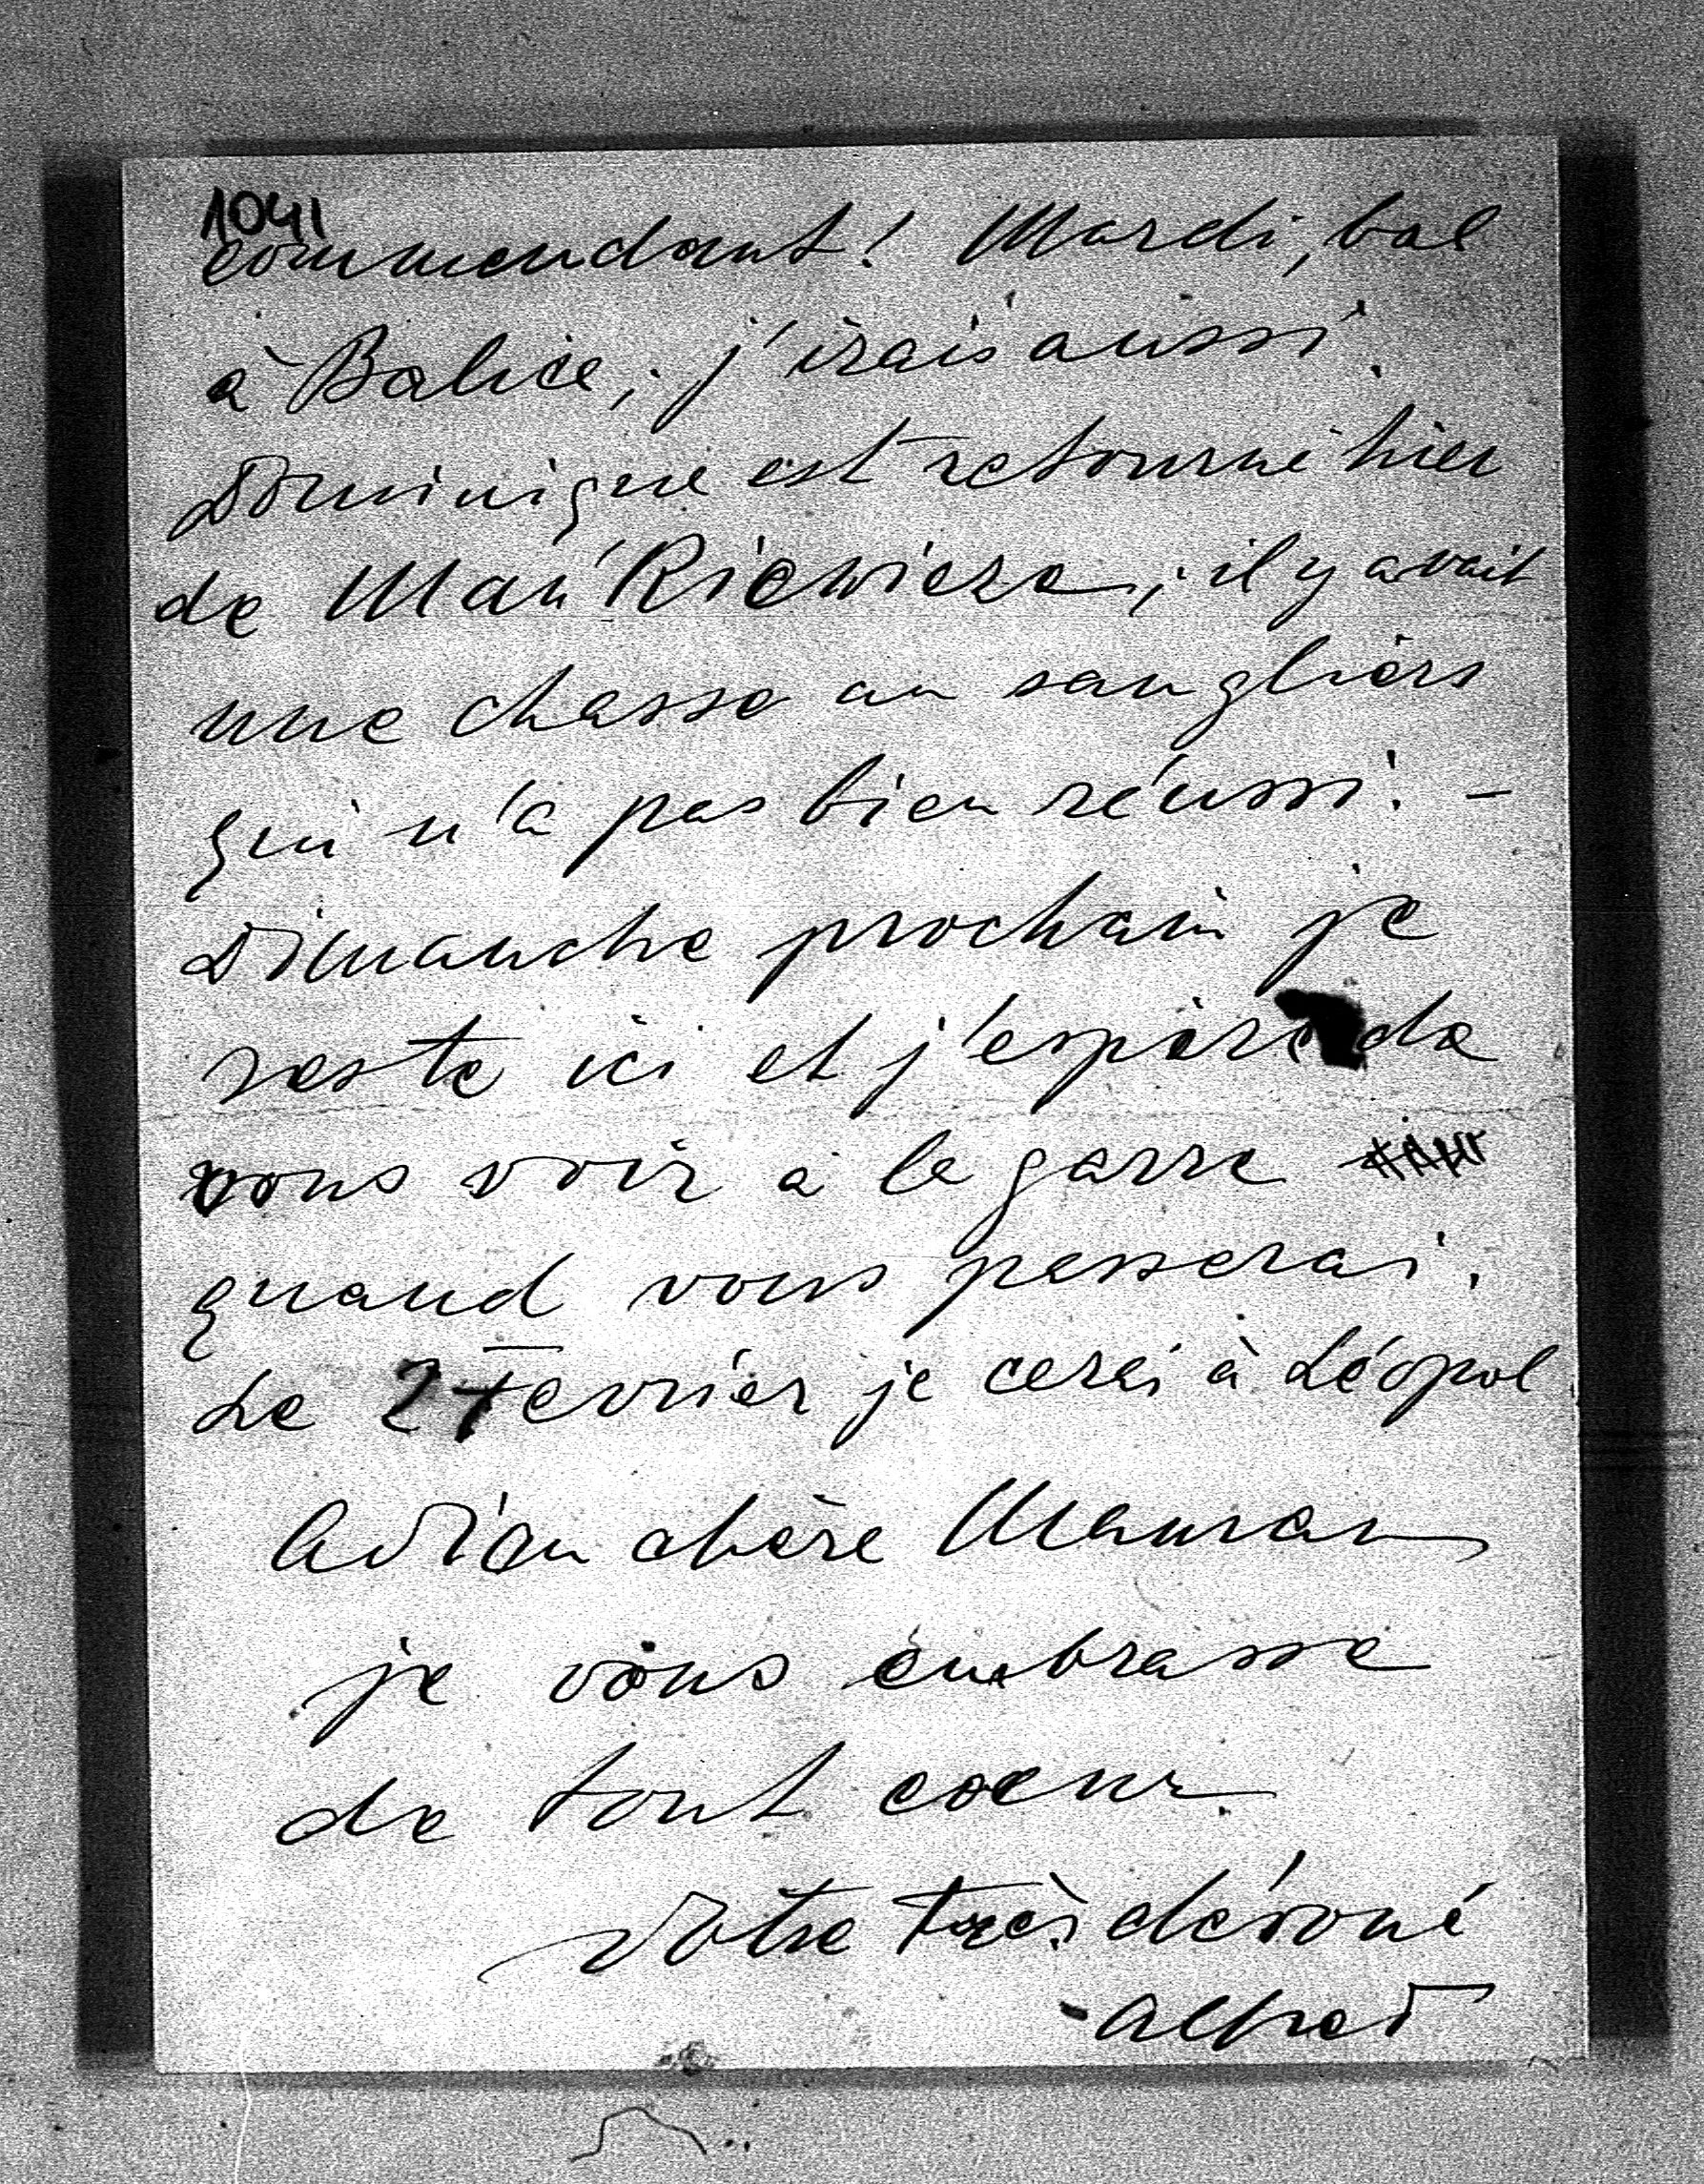 1041
commendant! Mardi, bal
à Balice, j'irais aussi.
Dominique est retourné hier
de Mańkiewicze, il y avait
une chasse au sangliers
qui n'a pas bien réussi. —
Dimanche prochain je
reste ici et j'espère de
vous voir a la garre
quand vous passerai.
Le 2 Fevrier je cerai à Léopol.
Adieu chère Maman
je vous embrasse
de tout coeur.
Votre très dévoué
Alfred